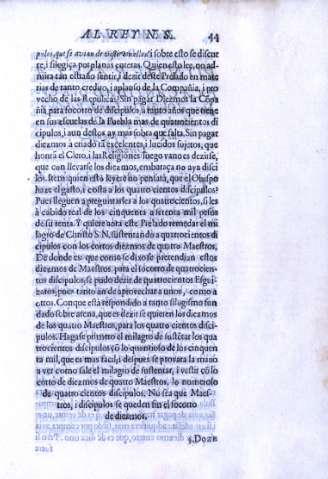 AL REY N. S. 44
pulos, que se avian de sustentar ellos i sobre esto se discu-
re, i silogiça por planas enteras. Quien esto lee, no ad-
mira tan estraño sentir, i dezir deste Prelado en mate-
rias de tanto credito, i aplauso de la Compañia, i pro
vecho de las Republicas. Sin pagar Diezmos la Cõpa
ñia para socorro de discipulos à tanto años que tiene
en sus escuelas de la Puebla mas de quatrocientos di
cipulos, i aun destos ay mas sobra que falta. Sin pagar
diezmos a criado tã excelentes, i lucidos sujetos, que
honra el Clero, i las Religiones luego vano es dezirse,
que con llevarse los diezmos, embaraça no aya disci
los. Item quien esto leyere no pensarà, que el Obispo
haze el gasto, i costa a los quatro cientos discipulos?
Pues lleguen a preguntarles a los quatrocientos, si les
à cabido real de los cinquenta a setenta mil pesos
de su renta. Y quiere aora este Prelado remedar el mi
lagro de Christo S. N. sustentando a quatrocientos di
cipulos con los cortos diezmos de quatro Maestros.
De donde es que como se dixo se pretendian estos
diezmos de Maestros, para el socorro de quatrocien-
tos discipulos, se pudo dezir de quatrocientos
pues tanto an de aprovechar a unos, como a
otros. Conque està respondido a tanto silogismo fun
dado sobre arena, que es dezir se quieren los diezmos
de los quatro Maestros, para los quatro cientos disci
pulos. Hagase primero el milagro de sustẽtar los qua
trocientos discipulos cõ lo quantioso de los cinquen
ta mil, que es mas facil, i despues se provarà la mano
a ver como sale el milagro de sustentar, i vestir cõ lo
corto de diezmos de quatro Maestros, lo numeroso
de quatro cientos discipulos. No sea que Maes-
tros, i discipulos se queden sin el socorro
de diezmos.
§. DOZE